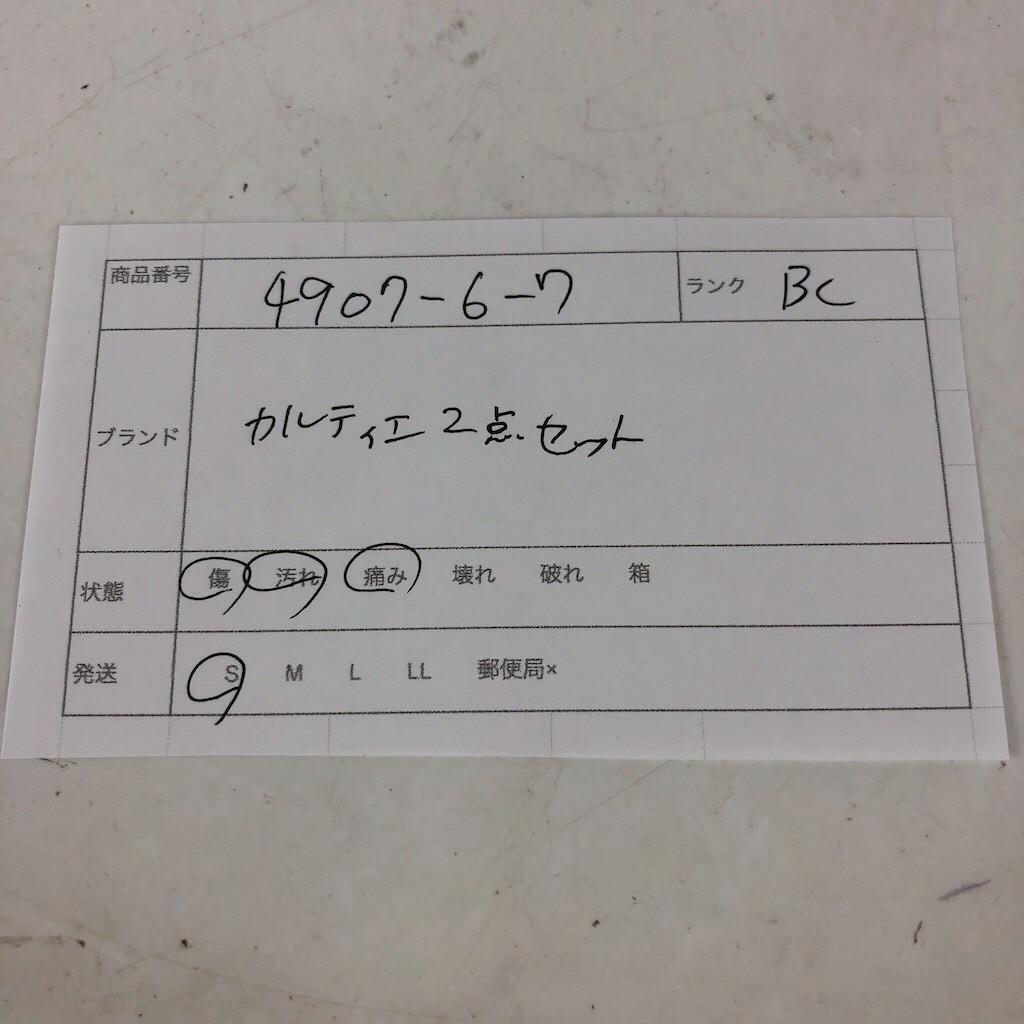 商品番号 4907-6-7 ランク BC
ブランド カルティエ 2点セット
状態 傷 汚れ 痛み 壊れ 破れ 箱
発送 S M L LL 郵便局×